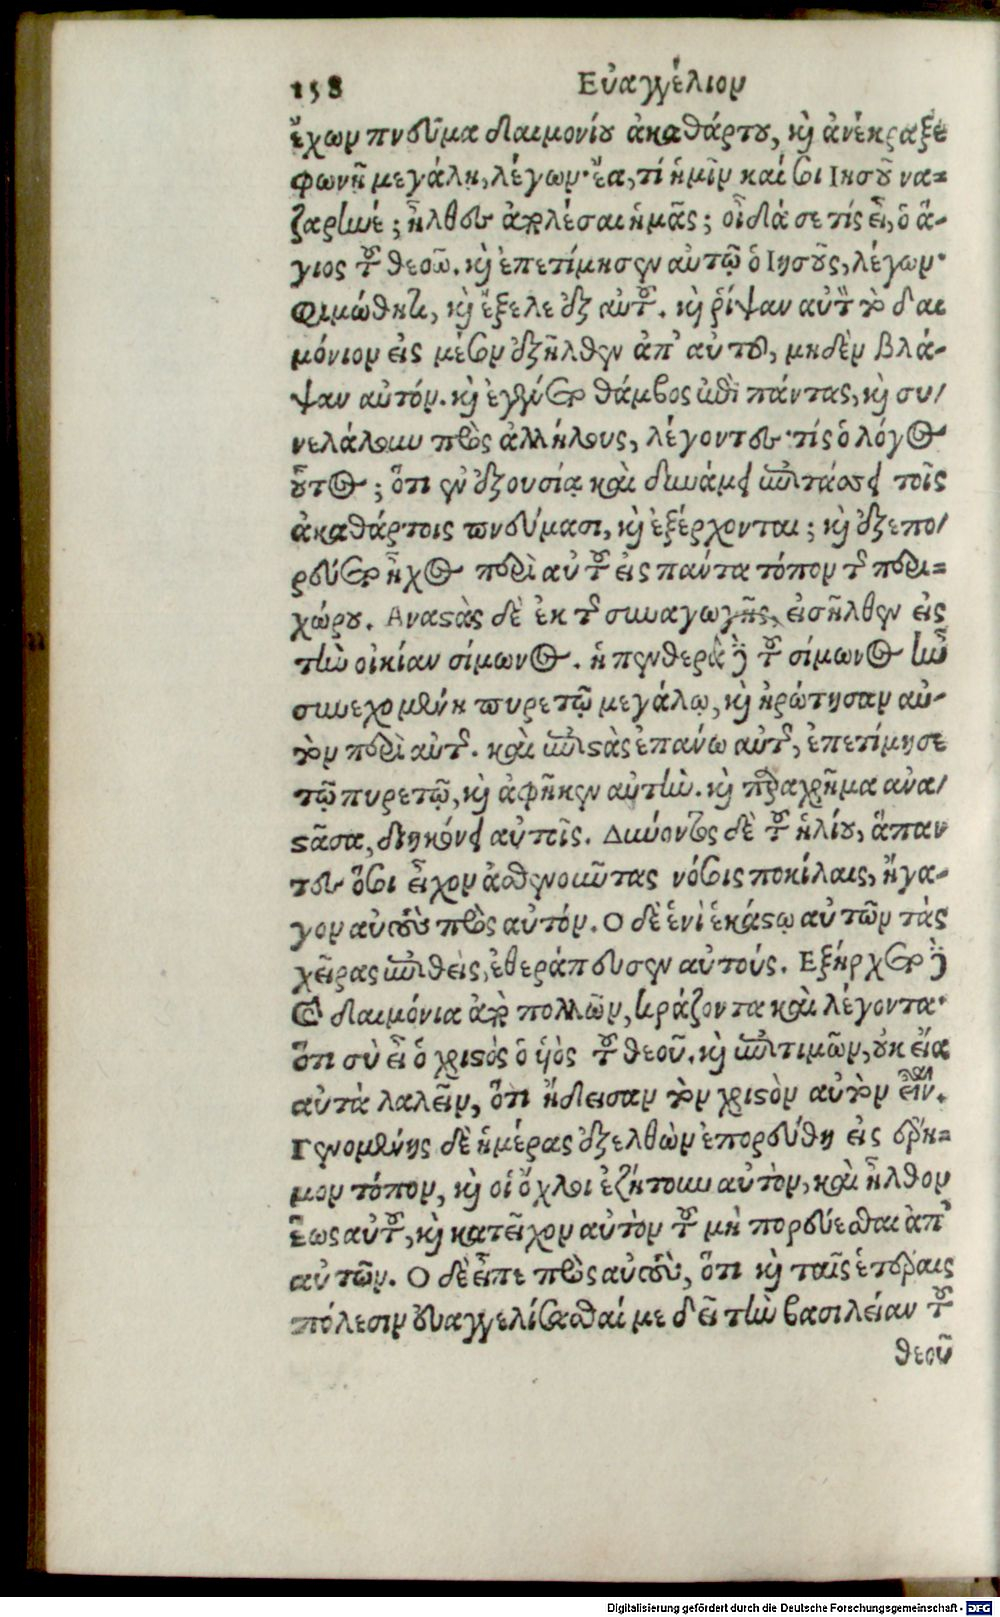 158 Εὐαγγέλιον
ἔχων πνεῦμα δαιμονίου ἀκαθάρτου, καὶ ἀνέκραξε
φωνῇ μεγάλῃ, λέγων· ἔα, τί ἡμῖν καί σοι Ιησοῦ να-
ζαρηνέ; ἦλθες ἀπολέσαι ἡμᾶς; οἶδά σε τίς εἶ, ὁ ἅ-
γιος τοῦ θεοῦ. καὶ ἐπετίμησεν αὐτῷ ὁ Ιησοῦς, λέγων·
Φιμώθητι, καὶ ἔξελε ἐξ αὐτοῦ. καὶ ῥίψαν αὐτὸν τὸ δαι
μόνιον εἰς μέσον ἐξῆλθεν ἀπ' αὐτοῦ, μηδὲν βλά-
ψαν αὐτόν. καὶ ἐγένετο θάμβος ἐπὶ πάντας, καὶ συ/
νελάλουν πρὸς ἀλλήλους, λέγοντες· τίς ὁ λόγος
οὗτος; ὅτι ἐν ἐξουσίᾳ καὶ δυνάμει ἐπιτάσσει τοῖς
ἀκαθάρτοις πνεύμασι, καὶ ἐξέρχονται; καὶ ἐξεπο/
ρεύετο ἦχος περὶ αὐτοῦ εἰς πάντα τόπον τῆς περι-
χώρου. Αναστὰς δὲ ἐκ τῆς συναγωγῆς, εἰσῆλθεν εἰς
τὴν οἰκίαν σίμωνος. ἡ πενθερὰ δὲ τοῦ σίμωνος ἦν
συνεχομένη πυρετῷ μεγάλῳ, καὶ ἠρώτησαν αὐ-
τὸν περὶ αὐτῆς. καὶ ἐπιστὰς ἐπάνω αὐτῆς, ἐπετίμησε
τῷ πυρετῷ, καὶ ἀφῆκεν αὐτήν. καὶ παραχρῆμα ἀνα/
στᾶσα, διηκόνει αὐτοῖς. Δύνοντος δὲ τοῦ ἡλίου, ἅπαν
τες ὅσοι εἶχον ἀσθενοῦντας νόσοις ποκίλαις, ἤγα-
γον αὐτοὺς πρὸς αὐτόν. Ο δὲ ἑνὶ ἑκάστῳ αὐτῶν τὰς
χεῖρας ἐπιθεὶς, ἐθεράπευσεν αὐτούς. Εξήρχετο δὲ
καὶ δαιμόνια ἀπὸ πολλῶν, κράζοντα καὶ λέγοντα·
ὅτι σὺ εἶ ὁ χριστὸς ὁ υἱὸς τοῦ θεοῦ. καὶ ἐπιτιμῶν, οὐκ εἴα
αὐτὰ λαλεῖν, ὅτι ᾔδεισαν τὸν χριστὸν αὐτὸν εἶναι.
Γενομένης δὲ ἡμέρας ἐξελθὼν ἐπορεύθη εἰς ἔρη-
μον τόπον, καὶ οἱ ὄχλοι ἐζήτουν αὐτὸν, καὶ ἦλθον
ἕως αὐτοῦ, καὶ κατεῖχον αὐτὸν τοῦ μὴ πορεύεσθαι ἀπ'
αὐτῶν. Ο δὲ εἶπε πρὸς αὐτοὺς, ὅτι καὶ ταῖς ἑτέραις
πόλεσιν εὐαγγελίσασθαί με δεῖ τὴν βασιλείαν τοῦ
θεοῦ
Digitalisierung gefördert durch die Deutsche Forschungsgemeinschaft - DFG